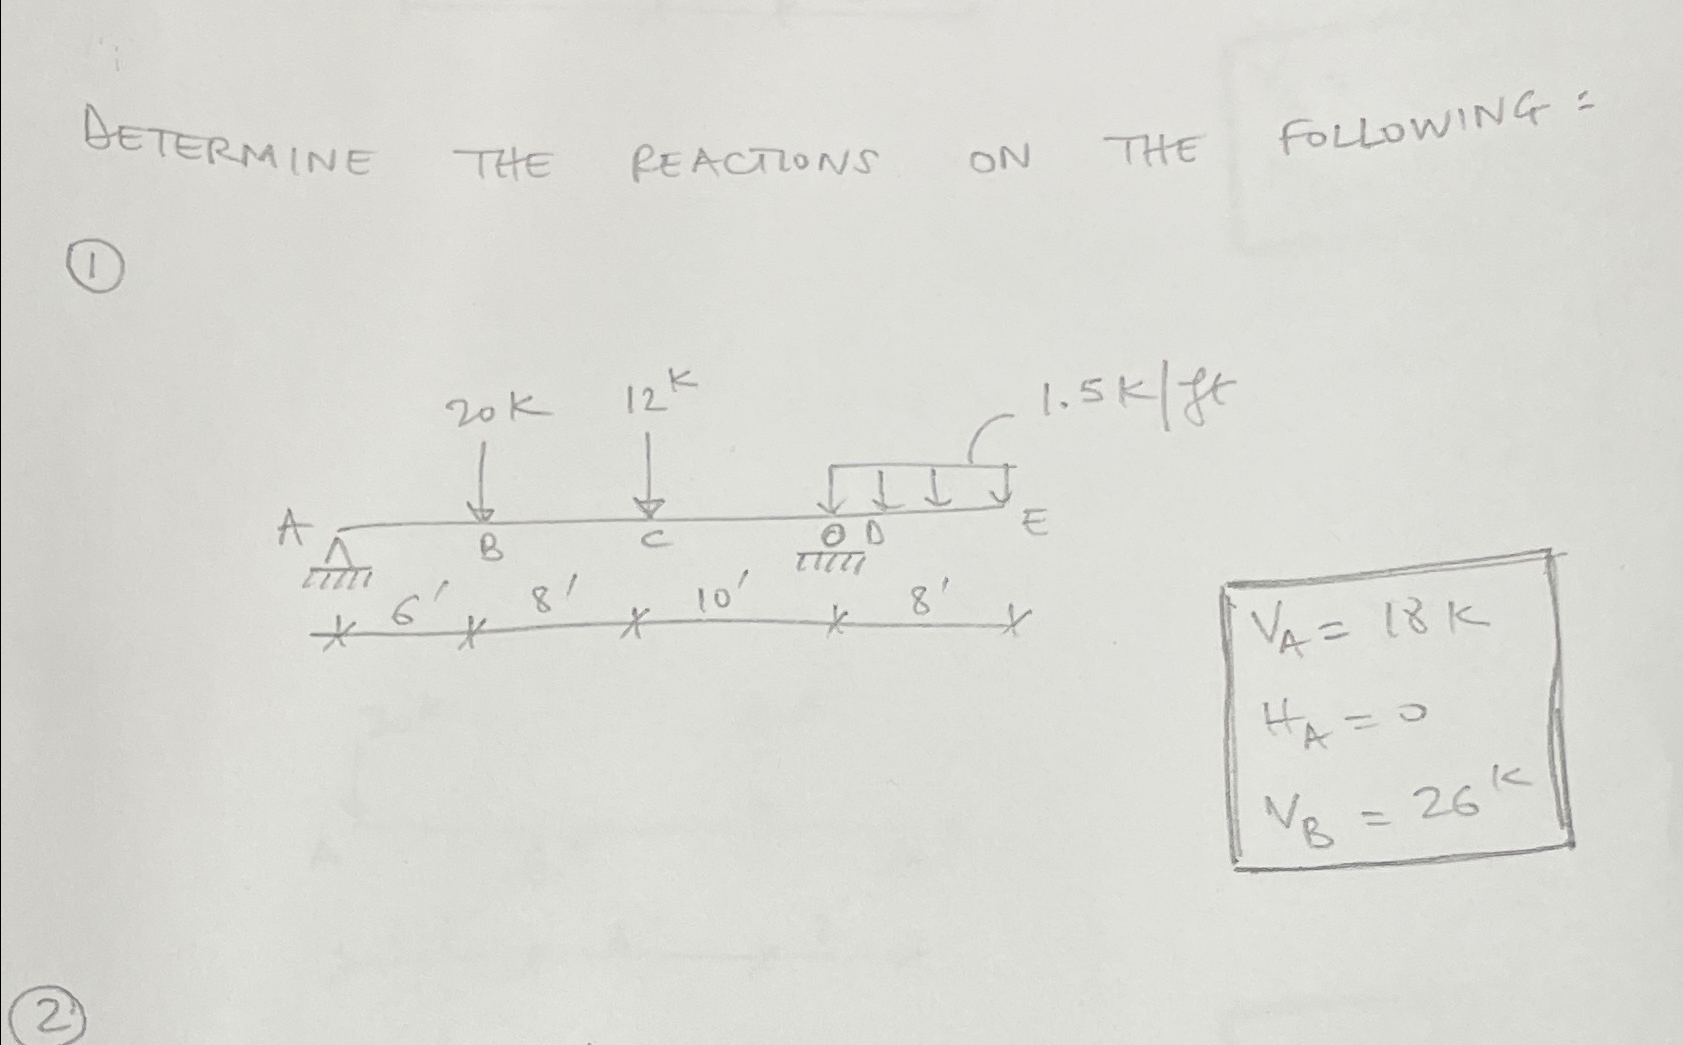 DETERMINE THE REACTIONS ON THE FOLLOWING:
1
20K 12K 1.5K/ft
A B C D E
6' 8' 10' 8'
VA = 18K
HA = 0
VB = 26K
2